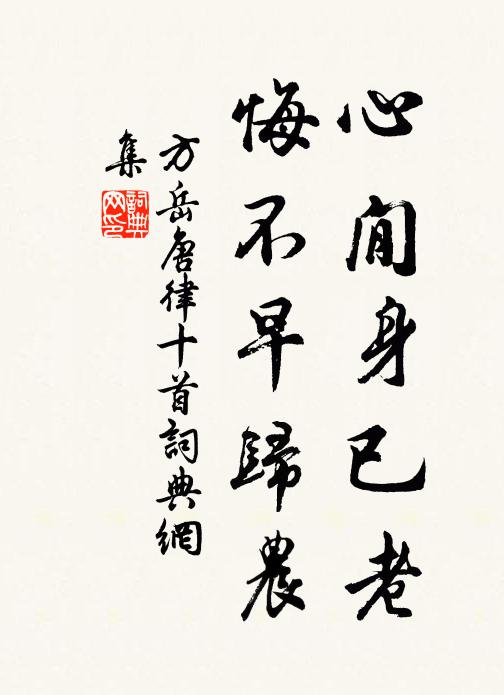 心閒身已老
悔不早歸農
方岳唐律十首詞典網
集
詞典
网印